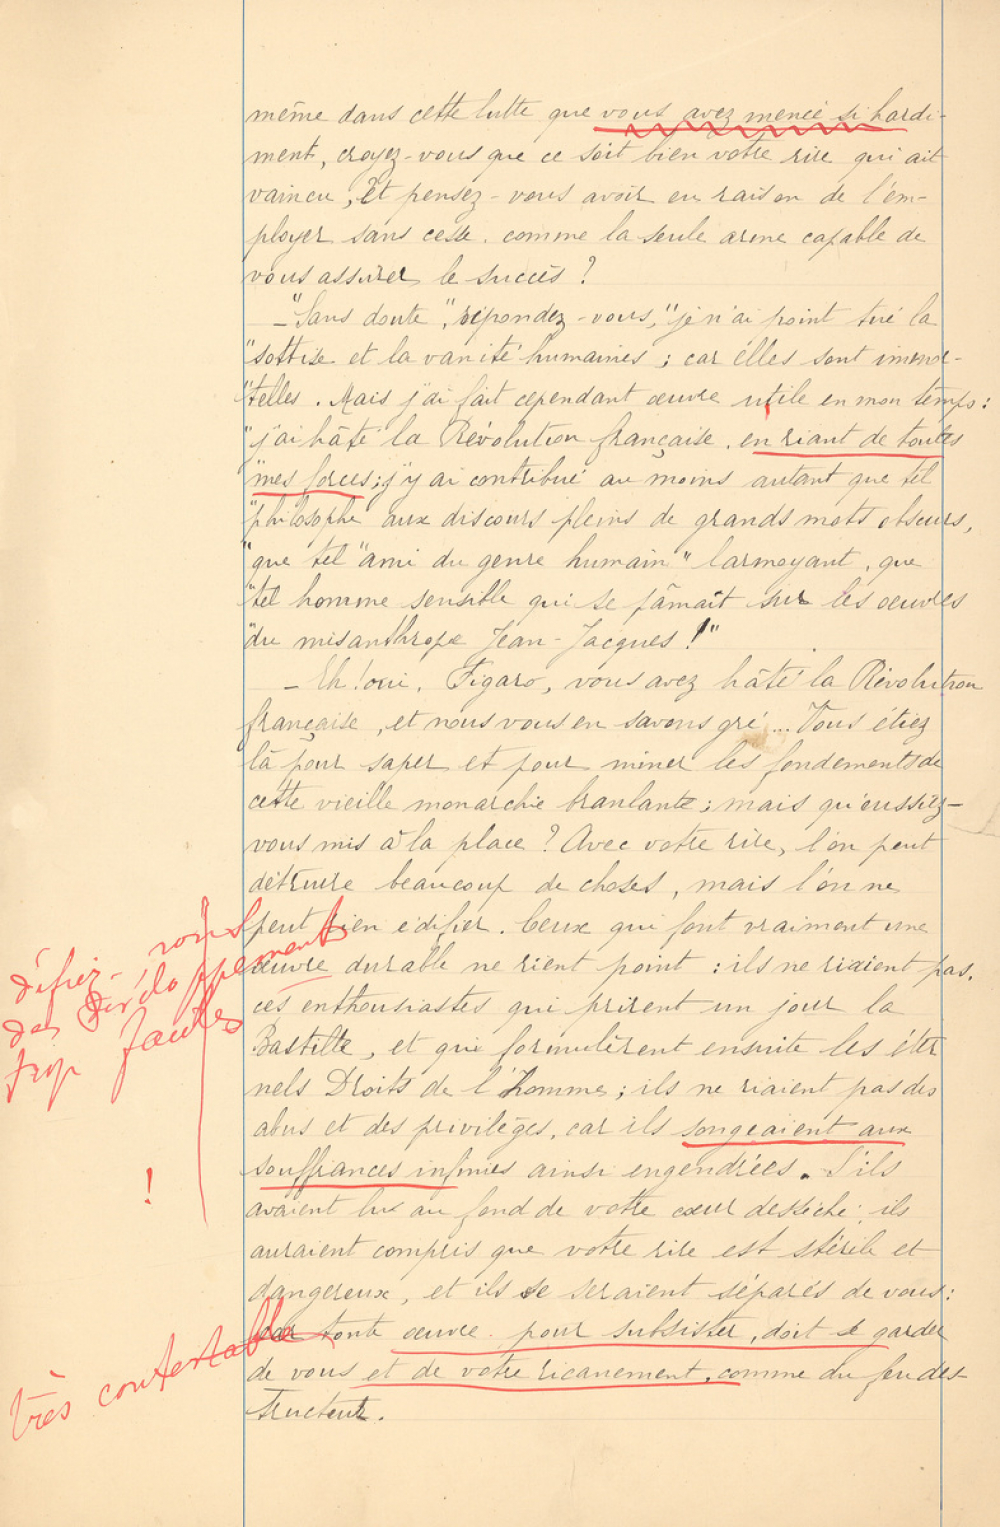 même dans cette lutte que vous avez menée si hardi-
ment, croyez-vous que ce soit bien votre rire qui ait
vaincu, et pensez-vous avoir eu raison de l'em-
ployer sans cesse. comme la seule arme capable de
vous assurer le succès ?
- "Sans doute", répondez-vous, "je n'ai point tué la
"sottise et la vanité humaines ; car elles sont immor-
"telles. Mais j'ai fait cependant œuvre utile en mon temps :
"j'ai hâté la Révolution française. en riant de toutes
"mes forces; j'y ai contribué au moins autant que tel
"philosophe aux discours pleins de grands mots obscurs,
"que tel "ami du genre humain" larmoyant, que
"tel homme sensible qui se pâmait sur les œuvres
"du misanthrope Jean-Jacques !"
- Eh ! oui, Figaro, vous avez hâté la Révolution
française, et nous vous en savons gré ... Vous étiez
là pour saper et pour miner les fondements de
cette vieille monarchie branlante ; mais qu'eussiez-
vous mis à la place ? Avec votre rire, l'on peut
détruire beaucoup de choses, mais l'on ne
peut rien édifier. Ceux qui font vraiment une
œuvre durable ne rient point : ils ne riaient pas,
ces enthousiastes qui prirent un jour la
Bastille, et qui formulèrent ensuite les éter
nels Droits de l'Homme ; ils ne riaient pas des
abus et des privilèges, car ils songeaient aux
souffrances infinies ainsi engendrées. S'ils
avaient lu au fond de votre cœur desséché, ils
auraient compris que votre rire est stérile et
dangereux, et ils se seraient séparés de vous :
car toute œuvre. pour subsister, doit se garder
de vous et de votre ricanement, comme du feu des-
tructeur.
défiez-vous
des développements
trop faciles
!
très contestable